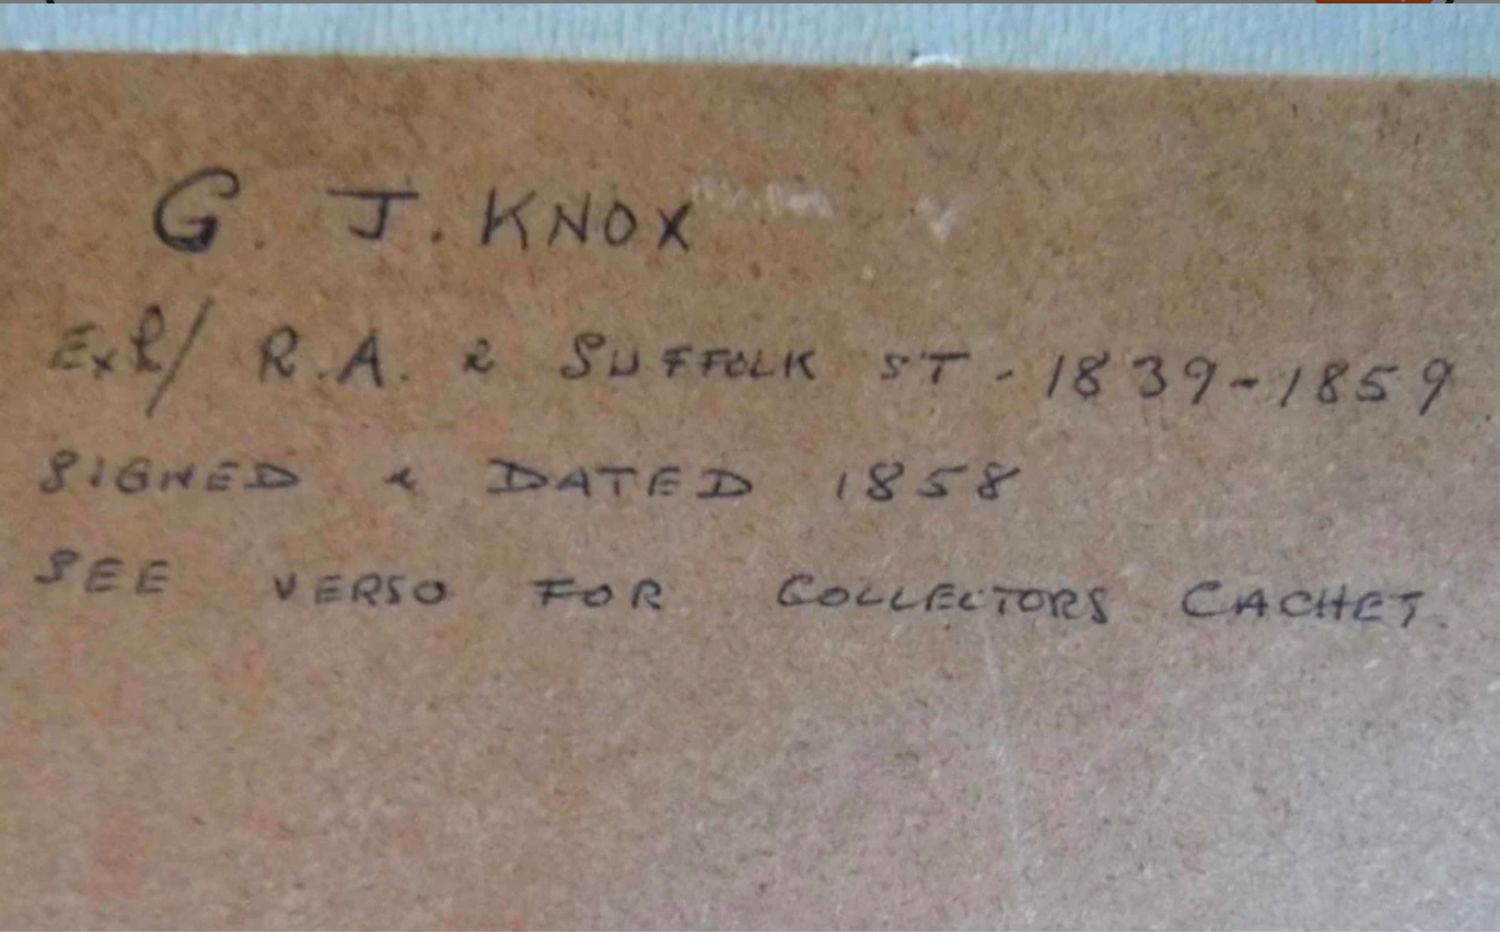 G. J. KNOX
Exh/ R.A. & SUFFOLK ST - 1839-1859.
SIGNED & DATED 1858
SEE VERSO FOR COLLECTORS CACHET.